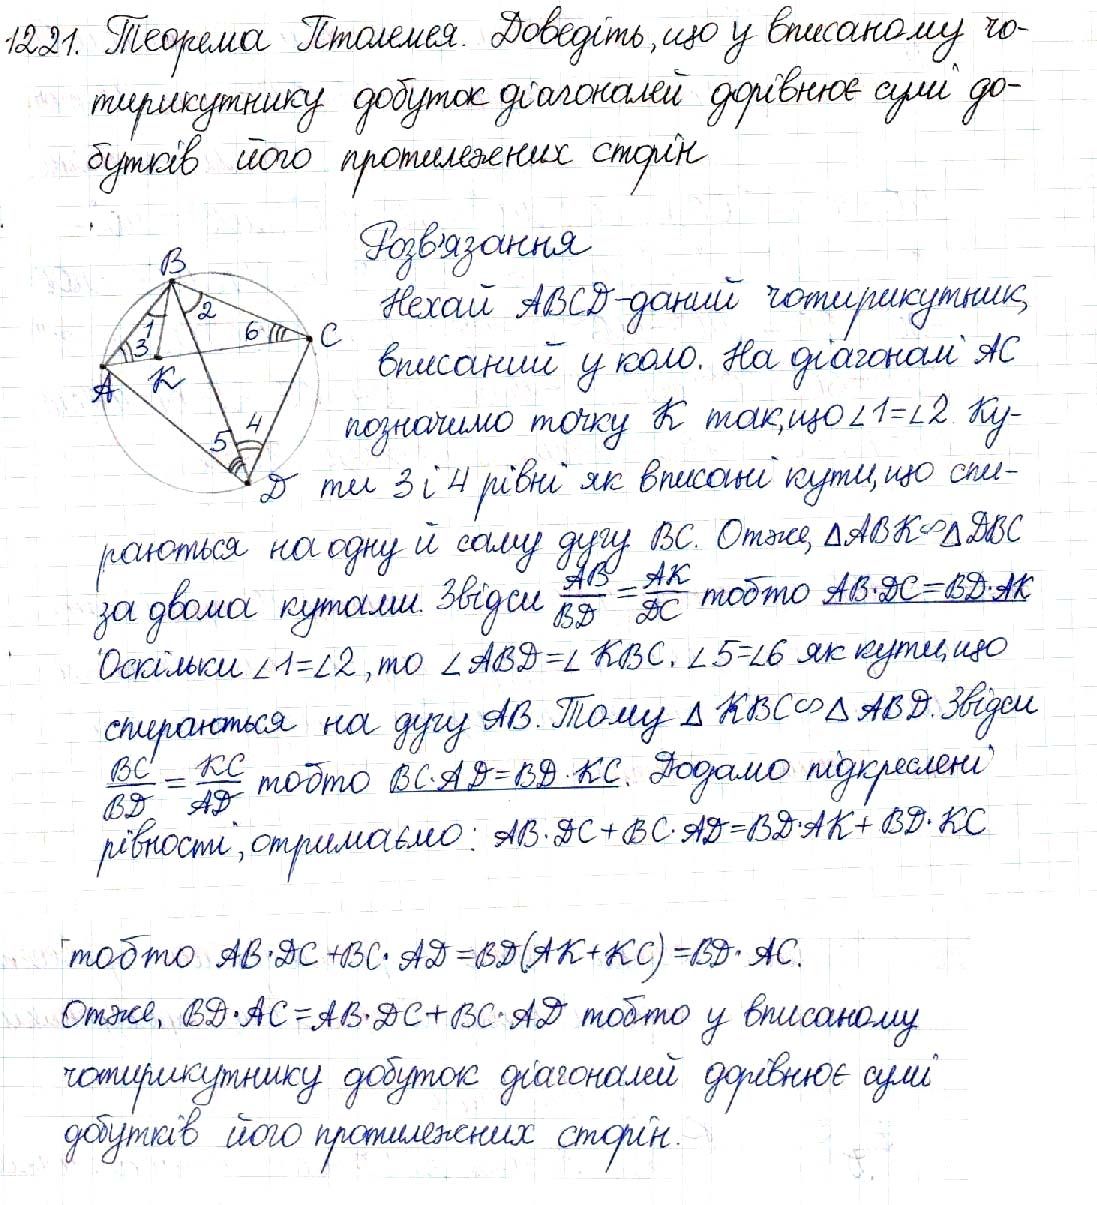 1221. Теорема Птолемея. Доведіть, що у вписаному чо-
тирикутнику добуток діагоналей дорівнює сумі до-
бутків його протилежних сторін
Розв'язання
B
1
2
3
6
C
A
K
5
4
D
Нехай ABCD-даний чотирикутник,
вписаний у коло. На діагоналі AC
позначимо точку K так, що ∠1=∠2. Ку-
ти 3 і 4 рівні як вписані кути, що спи-
раються на одну й саму дугу BC. Отже, △ABK∽△DBC
за двома кутами. Звідси AB/BD = AK/DC тобто AB·DC=BD·AK
Оскільки ∠1=∠2, то ∠ABD=∠KBC. ∠5=∠6 як кути, що
спираються на дугу AB. Тому △KBC∽△ABD. Звідси
BC/BD = KC/AD тобто BC·AD=BD·KC. Додамо підкреслені
рівності, отримаємо: AB·DC+BC·AD=BD·AK+BD·KC
тобто AB·DC+BC·AD=BD(AK+KC)=BD·AC.
Отже, BD·AC=AB·DC+BC·AD тобто у вписаному
чотирикутнику добуток діагоналей дорівнює сумі
добутків його протилежних сторін.